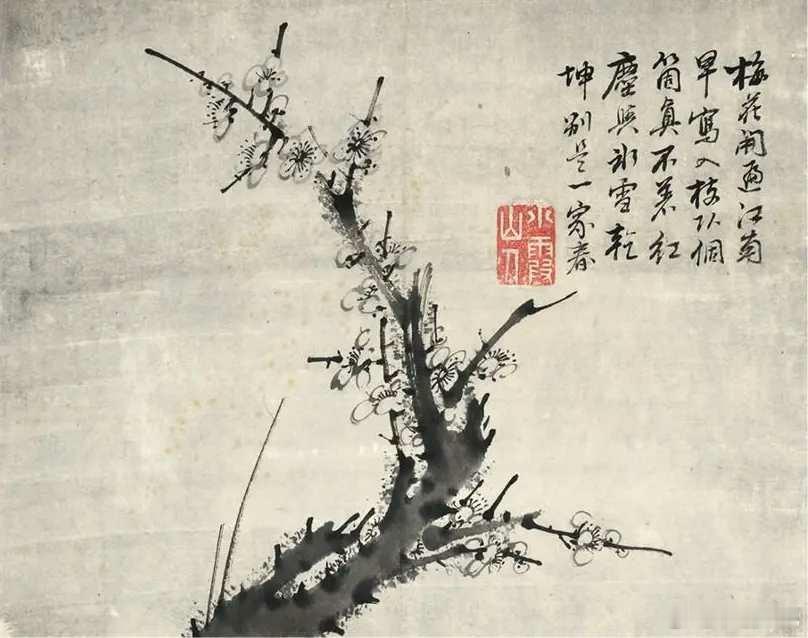 梅花開遍江南
早寫入枝頭個
箇真不著紅
塵與冰雪乾
坤別是一家春